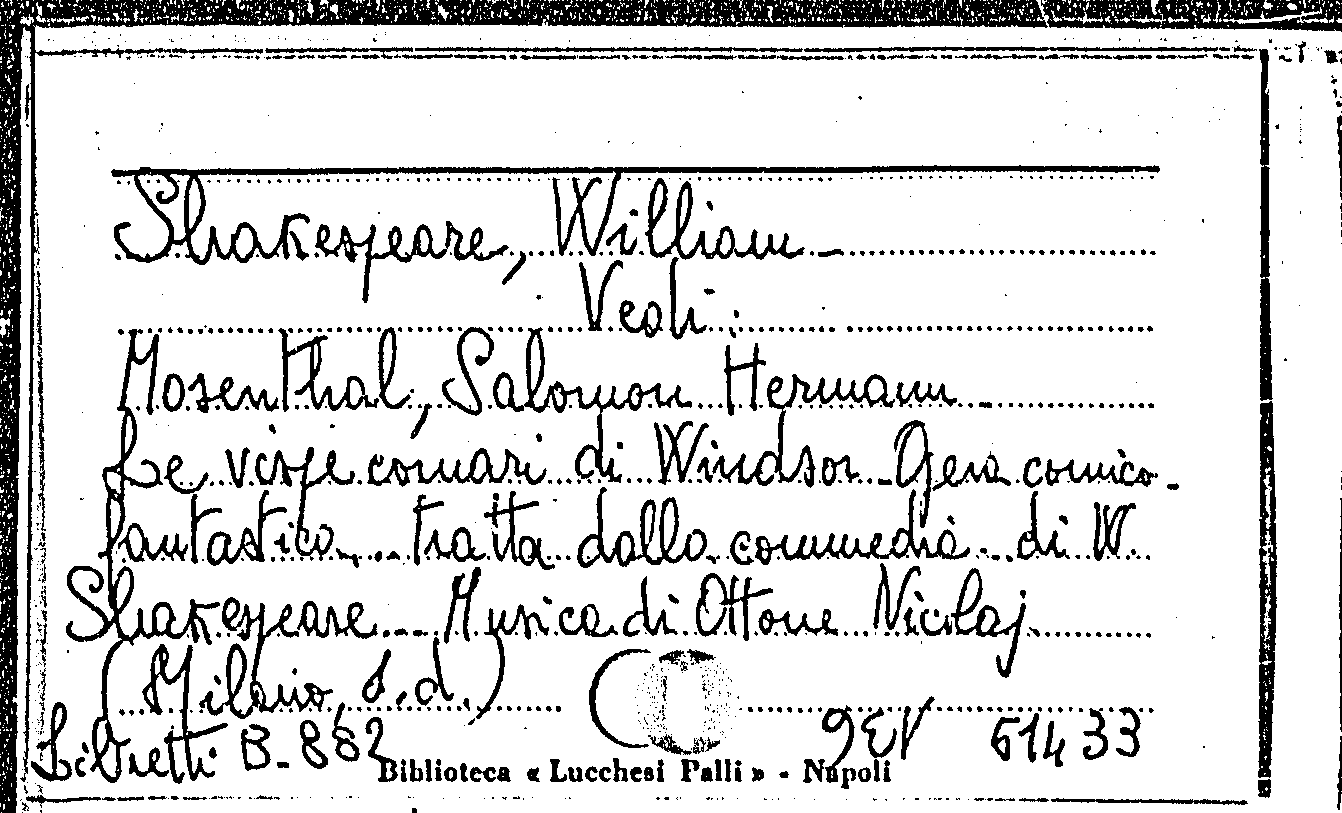 Shakespeare, William -
Vedi:
Mosenthal, Salomon Hermann
Le vispe comari di Windsor - Opera comico-
fantastica... tratta dalla commedia di W.
Shakespeare... Musica di Ottone Nicolaj
(Milano, s.d.)
Libretti B. 882 gev 61433
Biblioteca « Lucchesi Palli » - Napoli